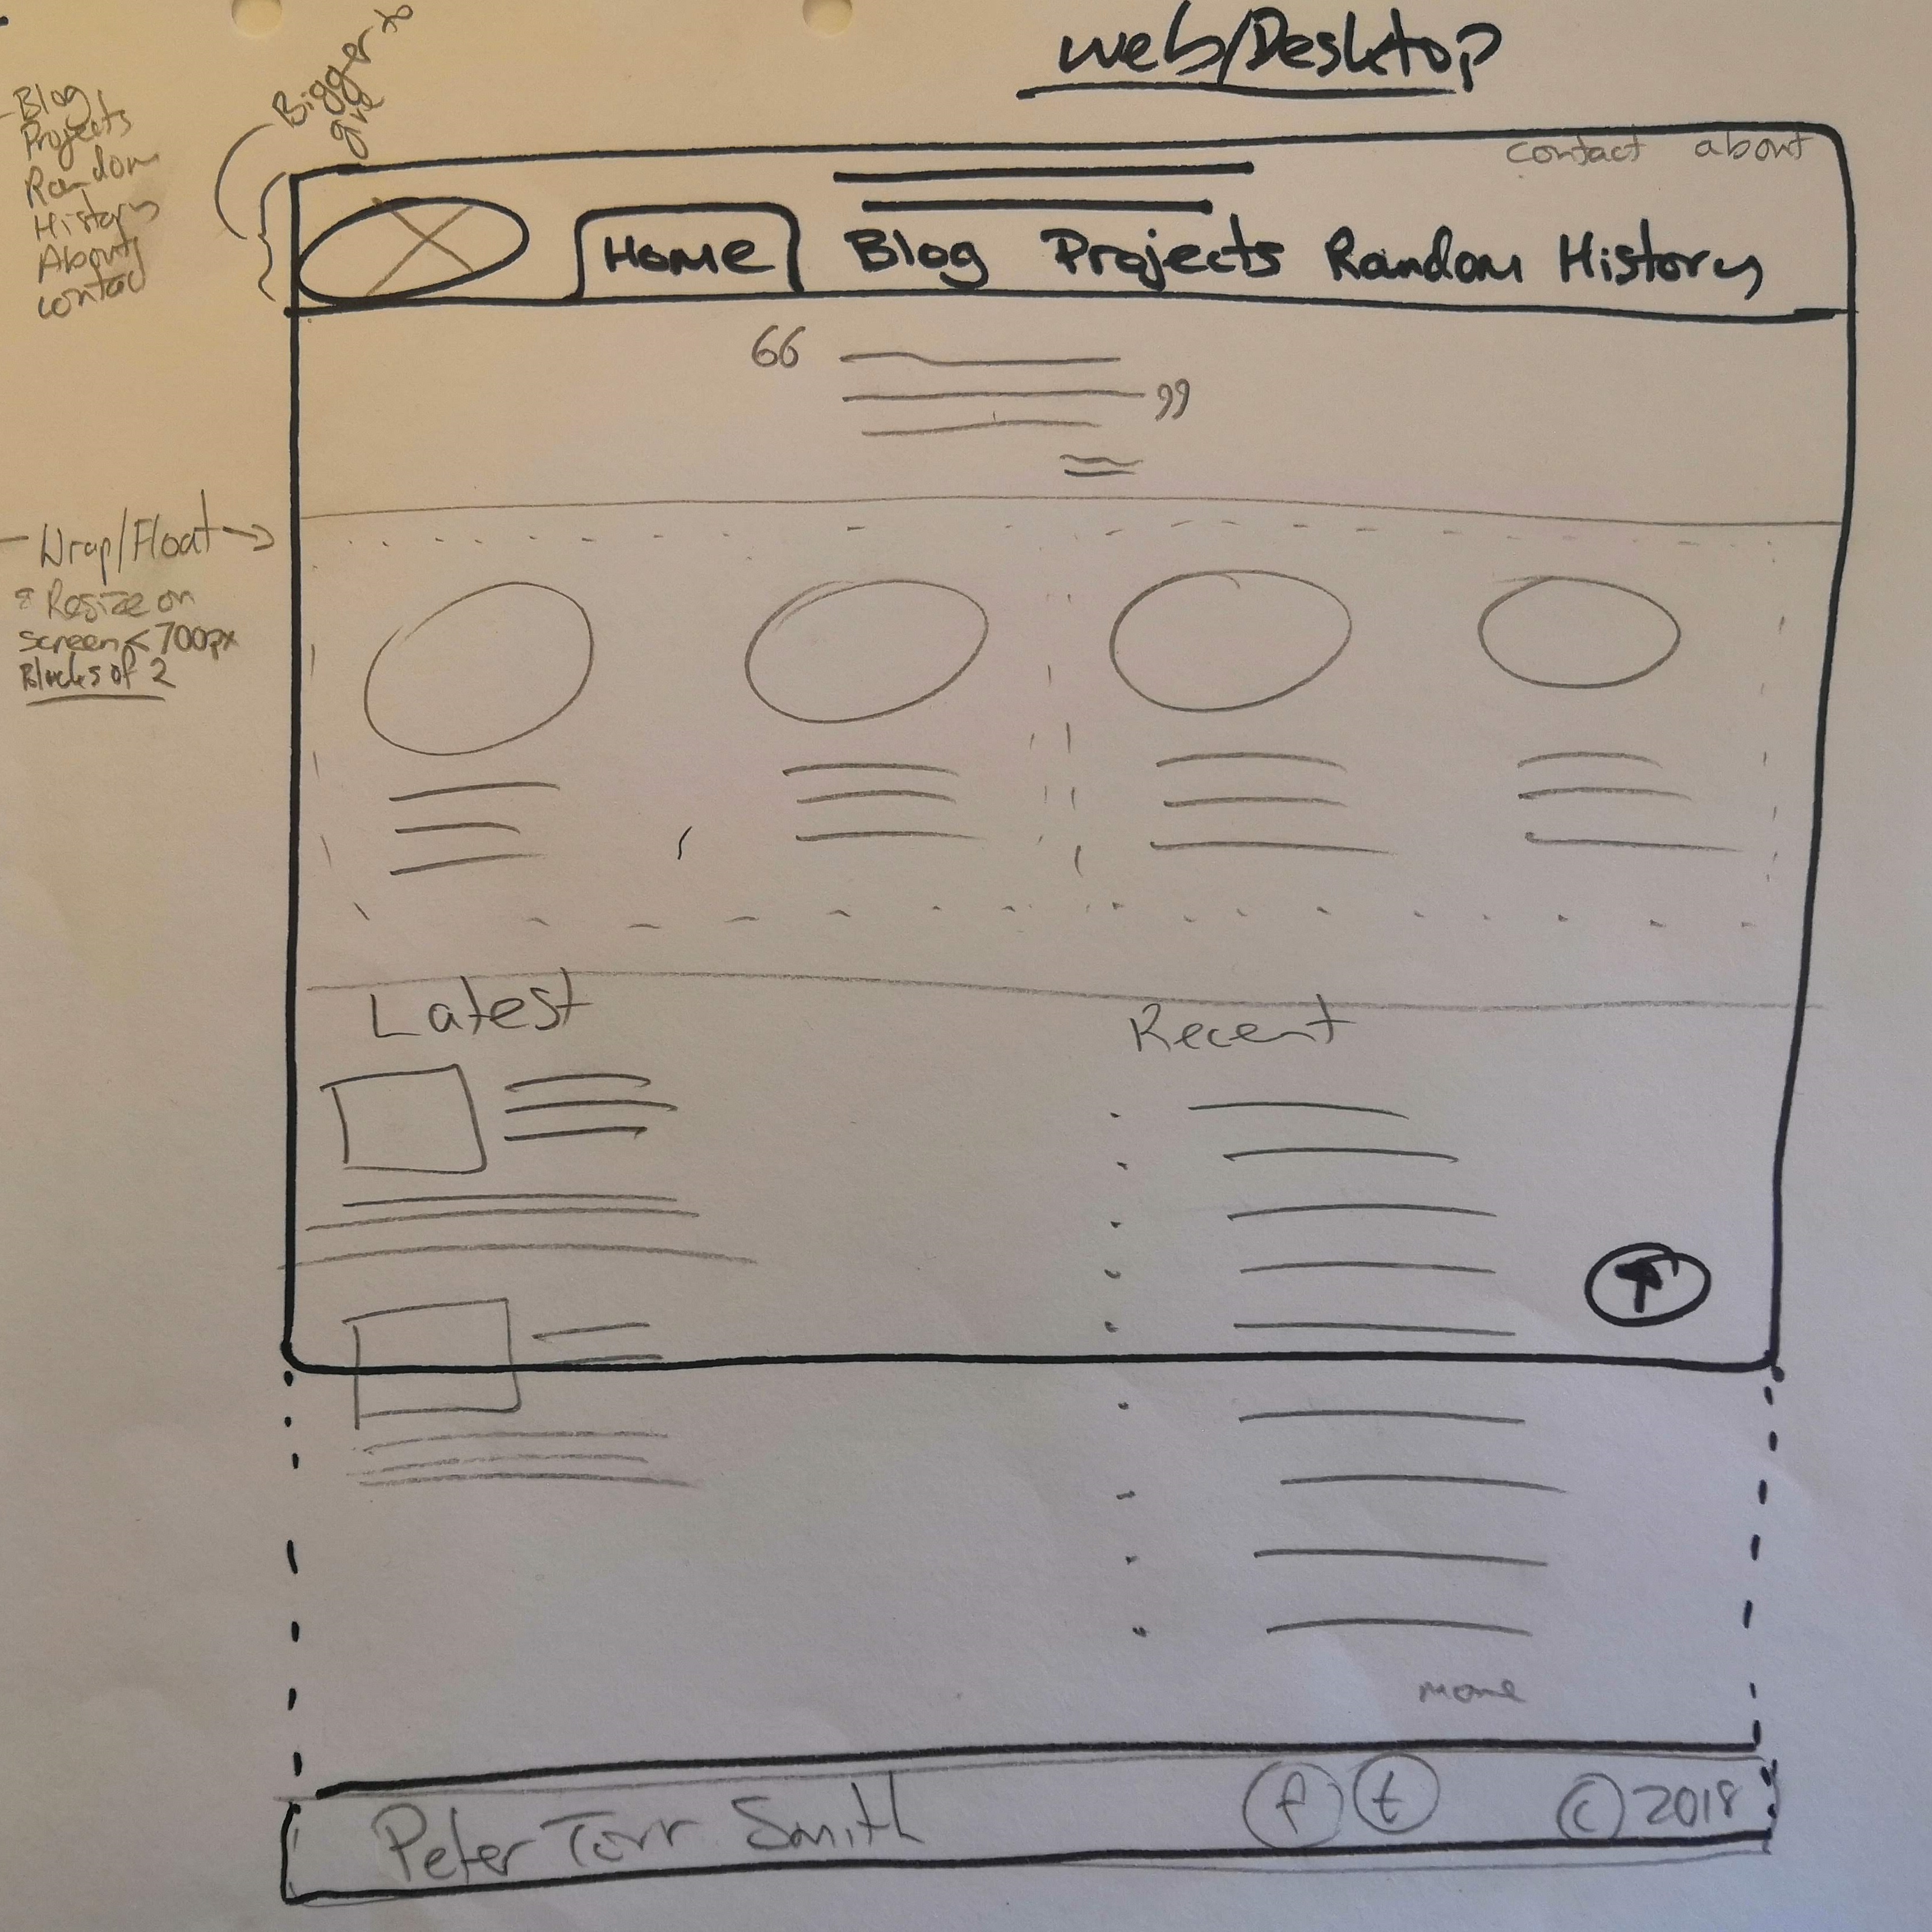 web/Desktop
Bigger to
give
- Blog
Projects
Random
History
About
contact
contact about
Home Blog Projects Random History
“
”
- Wrap/Float →
Resize on
screen < 700px
Blocks of 2
Latest
Recent
↑
more
Peter Torr Smith f t © 2018